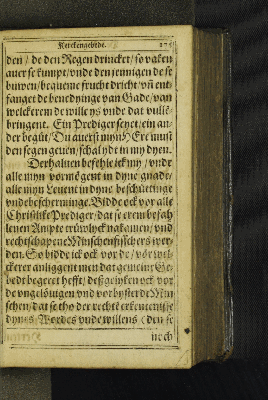 Kerckengebede. 275
den / de den Regen drincket / so vaken
auer se kumpt / vnde den jennigen de se
buwen / bequeme frucht dricht / vñ ent-
fanget de benedyinge van Gade / van
welckerem de wille ys vnde dat vulle-
bringent. Ein Prediger seyet / ein an-
der begüt / Du auerst mynHEre must
den segen geuen / schal ydt in my dyen.
Derhaluen befehle ick my / vnde
alle myn vormögent in dyne gnade /
alle myn Leuent in dyne beschüttinge
vnde bescherminge. Bidde ock vor alle
Christlike Prediger / dat se erem befah-
lenen Ampte trüwlyck nakamen / vnd
rechtschapene Minschenfisschers wer-
den. So bidde ick ock vor de / vör wel-
ckerer anliggent men dat gemeine Ge-
bedt begeret hefft / desgelyken ock vor
de vngelöuigen vnd vorbysterde Min-
schen / dat se tho der rechte erkentenisse
dynes Wordes vnde willens (den se
noch